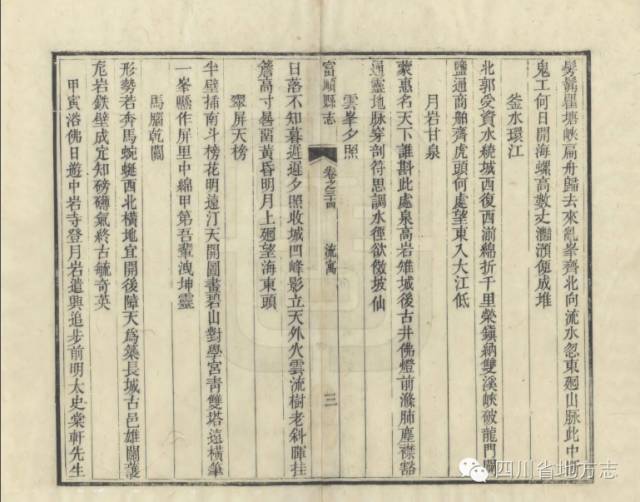 髣髴瞿塘峽扁舟歸去來亂峯齊北向流水忽東廻山脈此中
鬼工何日開海螺高數丈灩澦便成堆
釜水環江
北郭受資水繞城西復西湔綿折千里榮鎮納雙溪峽破龍門
鹽通商舶齊虎頭何處望東入大江低
月岩甘泉
蒙惠名天下誰斟此處泉高岩雉城後古井佛燈前滌肺塵襟豁
通靈地脈穿剖符思調水徑欲傲坡仙
雲峯夕照
富順縣志 卷之三十四 流寓 三
日落不知暮遲遲夕照收城凹峰影立天外火雲流樹老斜暉挂
簷高寸晷留黃昏明月上廻望海東頭
翠屏天榜
半壁插南斗榜花明遠汀天開圖畫碧山對學宮青雙塔遠橫筆
一峯懸作屏里中綿甲第吾輩洩坤靈
馬腦乾關
形勢若奔馬蜿蜒西北橫地宜開後障天為築長城古邑雄關護
危岩鉄壁成定知磅礡氣終古毓奇英
甲寅浴佛日遊中岩寺登月岩遣興追步前明太史棠軒先生
四川省地方志